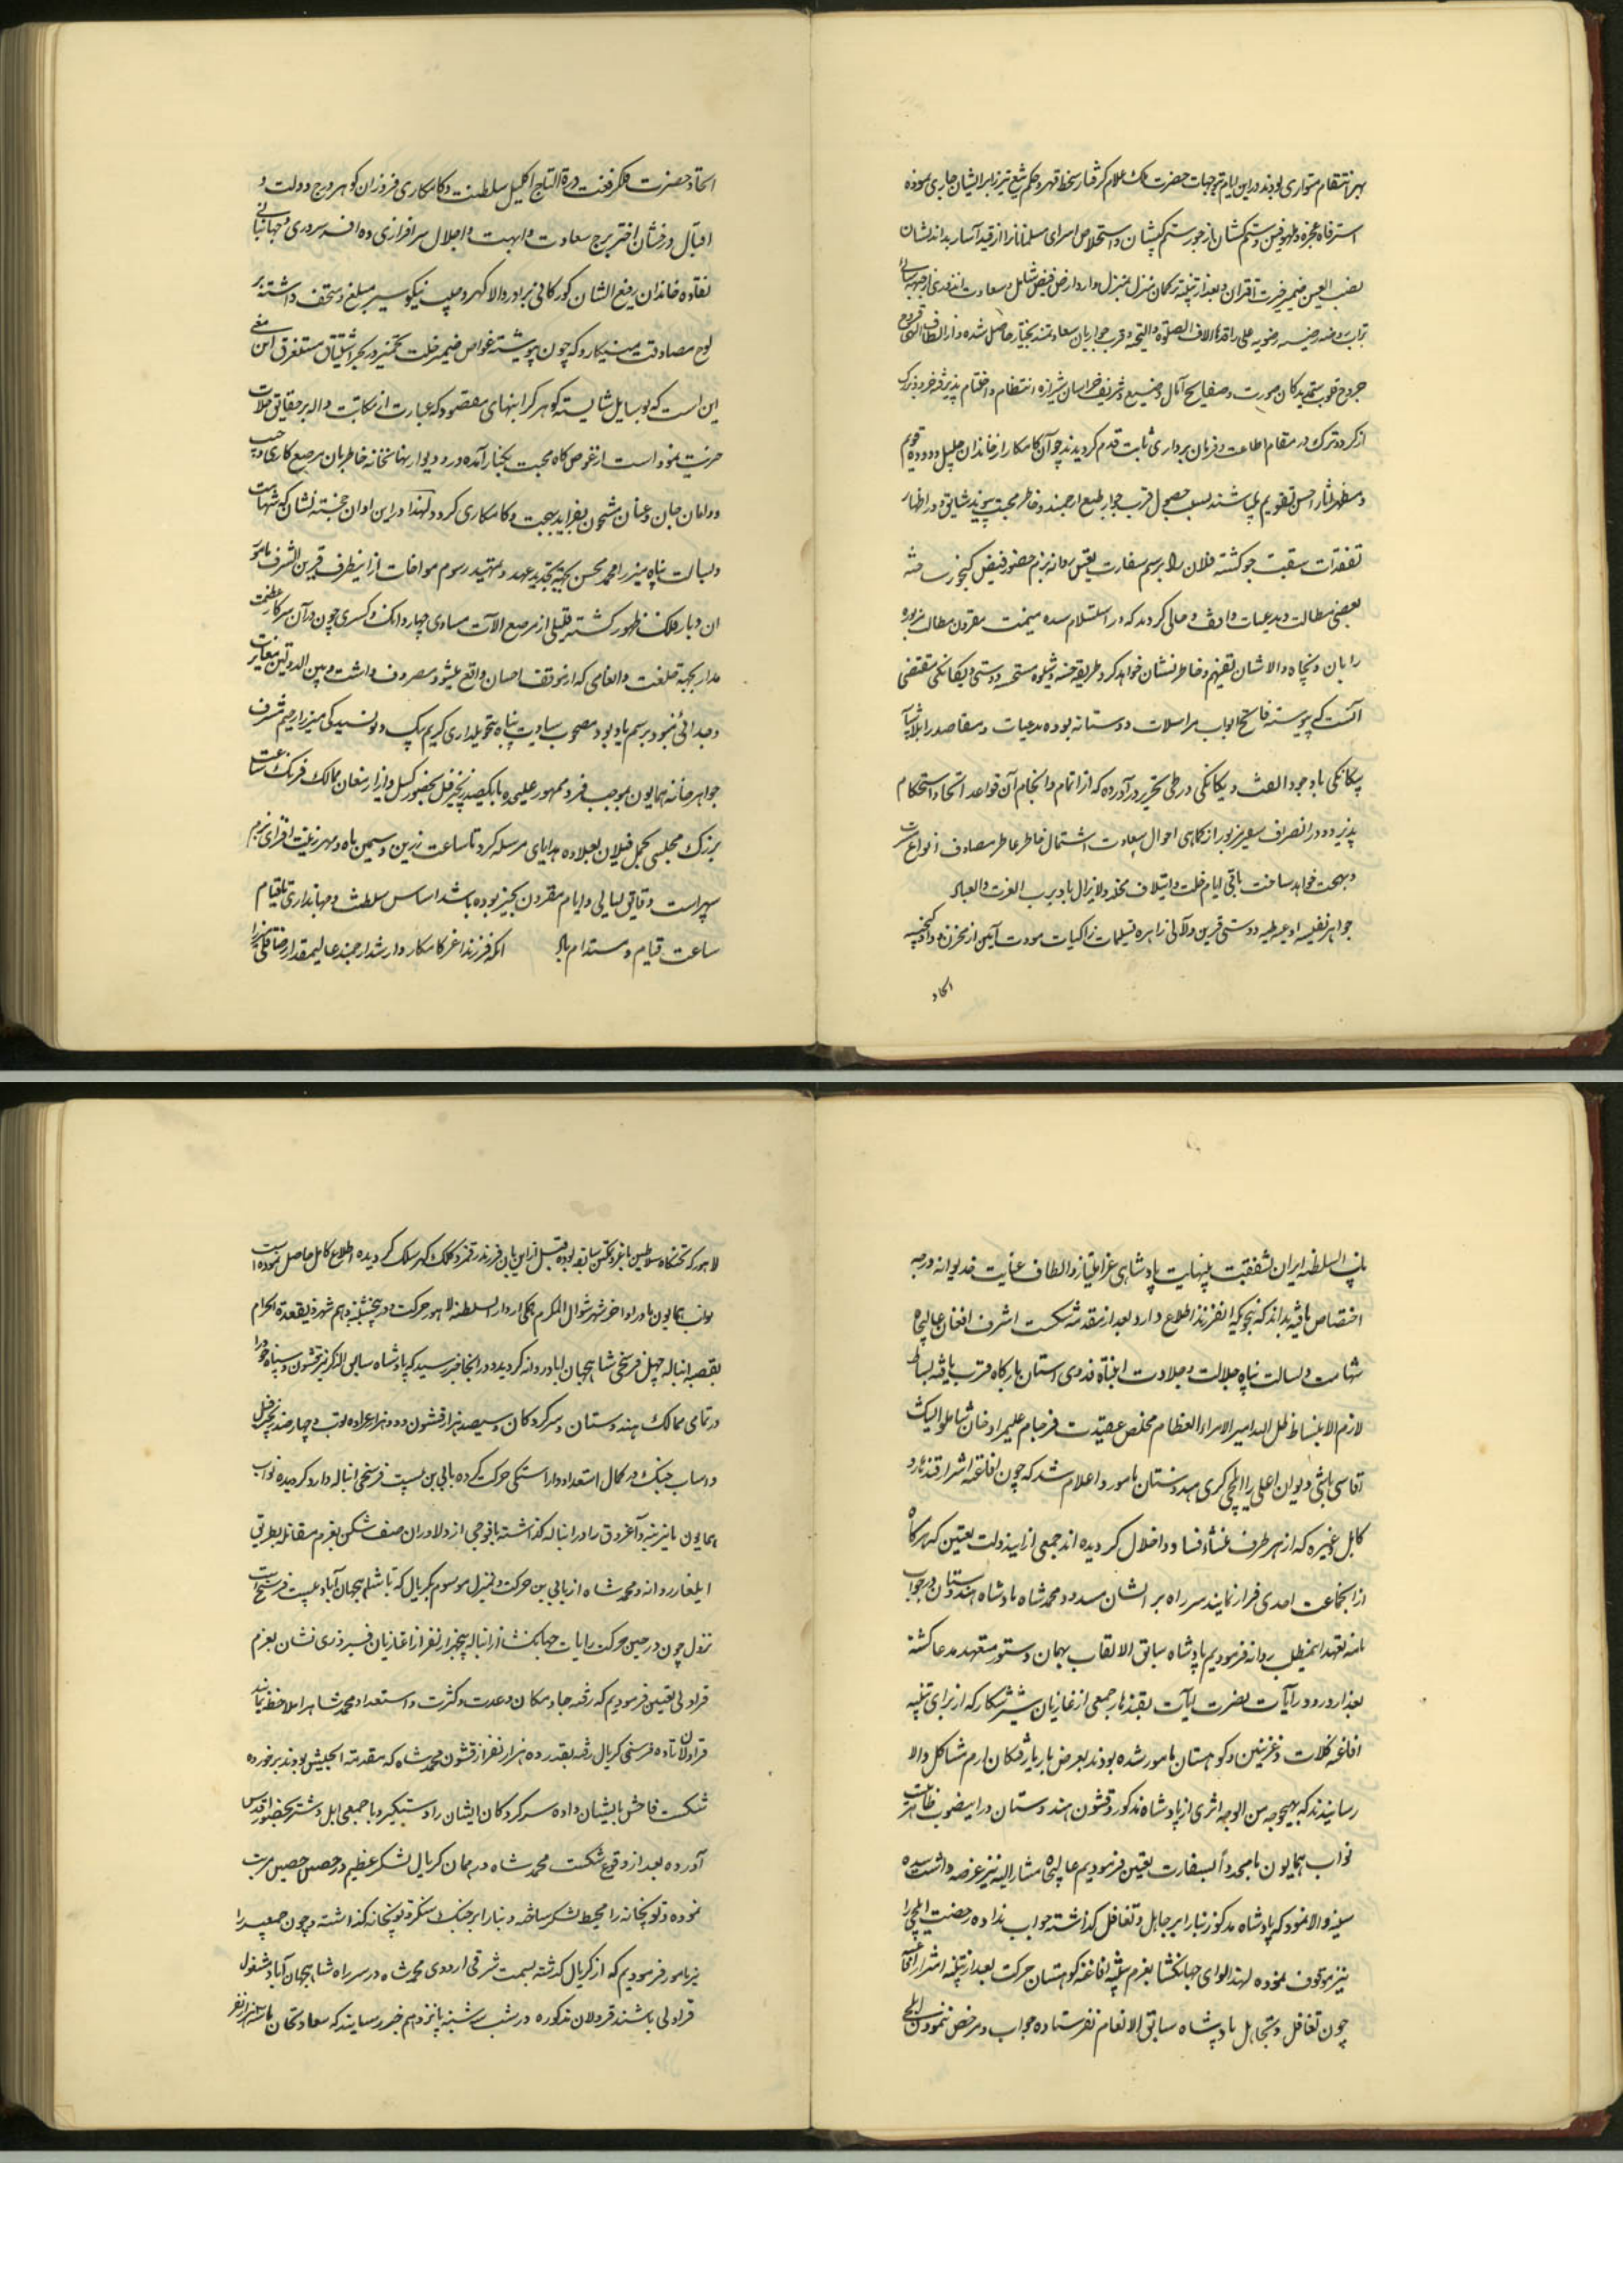 بهر انتقام متواری بودند در این ایام بتوجهات حضرت ملک علام گرفتار سخط قهر و حکم تیغ تیز بر ایشان جاری نموده
استرفاه عجزه و ملهوفین و ستم کشان از جور ستم کیشان و استخلاص اسرای مسلمانان را از قید آسار بداندیشان
نصب العین ضمیر و بعد از تنبیه ترکمان منزل بمنزل وارد ارض فیض شامل و سعادت اندوز
تراب روضه رضیه رضویه علی راقدها الاف الصلوة و التحیة و قرب جوار بان سعادتمند بختیار حاصل شده و از الطاف الهی
جروح قلوب ستمدیدگان صورت و صفایح آمال وضیع و شریف خراسان شیرازه انتظام و اختتام پذیرفته خرد و بزرگ
از کرد و ترک در مقام اطاعت و فرمان برداری ثابت قدم گردیدند چو آن کامکار از خاندان جلیل و دوده قویم
و مظهر آثار احسن تقویم میباشند بسبب حصول قرب جوار طبع ارجمند و خاطر محبت پیوند شایق اظهار
تفقدات سبقت جو گشته فلان را برسم سفارت تعیین روانه بزم حضور فیض گنجور ساخته
بعضی مطالب و مدعیات واقف و حالی گردید که در استلام سده میمنت مقرون مطالب مزبوره
را بان والاشان تفهیم و خاطر نشان خواهد کرد طریقه حسنه و شیوه مستحسنه دوستی و یگانگی مقتضی
آنست که پیوسته فاتح ابواب مراسلات دوستانه بوده مدعیات و مقاصد را بلا شایبه
بیگانگی باد جود الفت و یگانگی در طی تحریر در آورده که از اتمام و انجام آن قواعد اتحاد استحکام
پذیرد و در انصراف سفیر مزبور از آگاهی احوال سعادت اشتمال خاطر عاطر مصادف انواع مسرت
و بهجت خواهد ساخت باقی ایام خلت و ایتلاف مخلد و لایزال باد برب العزت و العباد
جواهر نفیسه ادعیه طیبه دوستی قرین و لآلی زاهره تسلیمات زاکیات مودت آیین از مخزن وداد و گنجینه
اتحاد
اتحاد حضرت فلک رفعت درة التاج اکلیل سلطنت و کامکاری فروزان گوهر درج دولت و
اقبال درخشان اختر برج سعادت و ابهت و اجلال سرافرازی ده افسر سروری و جهانبانی
نقاوه خاندان رفیع الشان گورکانی برادر والا گهر و مهین نیکو سیر مبلغ و متحف داشته بر
لوح مصادقت مینگارد که چون پیوسته غواص ضمیر خلت تخمیر در بحر اشتیاق مستغرق این معنی
این است که بوسایل شایسته گوهر گرانبهای مقصود که عبارت از مکاتبت دال بر حقایق حالات
خیریت نمود است از غوص گاه محبت بکنار آمده در و دیوار نهانخانه خاطر بان مرصع کاری و جیب
و دامان جان و عنان مشحون بفراید بهجت و کامکاری گردد لهذا در این اوان خجسته نشان که شهامت
و بسالت پناه میرزا محمد محسن بجهة تجدید عهد و تمهید رسوم موافات از اینطرف قرین الشرف مأمور
ان دیار فلک ظهور گشته قلیلی از مرصع آلات مساوی چهار دانگ و کسری چون در آن سرکار عظمت
مدار بجهة خلعت و انعامی که از موقف احسان واقع میشود مصروف داشت و بین الدولتین مغایرت
و جدائی نبود برسم یاد بود مصحوب سیادت پناه تحویلداری کریم بیک و نویسندگی میرزا رحیم مشرف
جواهرخانه همایون بموجب فرد ممهور علیحده با یکصد زنجیر فیل بحضور گسیل و از ارمغان ممالک فرنگ ساعت
بزرگ مجلسی بحمل فیلان بعلاوه هدایای مرسله کرد تا ساعت زرین و سیمین ماه و مهر زینت افزای بزم
سپهر است دقایق لیالی و ایام مقرون بخیر بوده باشد اساس سلطنت و جهانداری تا قیام
ساعت قیام و مستدام باد آنکه فرزند اعز کامکار وارشد ارجمند عالیمقدار رضا قلی میرزا
نایب السلطنه ایران بشفقت بی نهایت پادشاهی عز امتیاز و الطاف عنایت خدیوانه درجه
اختصاص یافته بداند که بنحویکه آنفرزند اطلاع دارد بعد از مقدمه شکست اشرف افغان عالیجاه
شهامت و بسالت پناه جلالت و جلادت انتباه فدوی آستان بارگاه قرب یافته بساط
لازم الانبساط ظل الله امیر الامراء العظام مخلص عقیدت فرجام علیمراد خان شاملو ایشیک
آقاسی باشی دیوان اعلی را بایلچی گری هندوستان مأمور و اعلام شد که چون افاغنه اشرار قندهار و
کابل و غیره که از هر طرف منشاء فساد و اخلال گردیده اند جمعی از ایندولت تعیین که هرگاه
از آنجماعت احدی فرار نمایند سر راه بر ایشان مسدود و محمد شاه پادشاه هندوستان در جواب
نامه تعهد اینمطلب روانه فرمودیم پادشاه سابق الالقاب بهمان دستور متعهد مدعا گشته
بعد از ورود رایات نصرت آیات بقندهار جمعی از غازیان شیر شکار که از برای تنبیه
افاغنه کلات و غزنین و کوهستان مامور شده بودند بعرض باریافتگان ارم مشاکل والا
رسانیدند که بهیچوجه من الوجه اثری از پادشاه مذکور و قشون هندوستان در اینصوب ظاهر
نواب همایون ما مجدداً بسفارت تعیین فرمودیم عالیجاه مشارالیه نیز عرضه داشت سده
سنیه والا نمود که پادشاه مذکور بنا را بر تجاهل و تغافل گذاشته جواب نداده رخصت ایلچی را
نیز موقوف نموده لهذا لوای جهانگشا بعزم تنبیه افاغنه کوهستان حرکت بعد از تنبیه اشرار افاغنه
چون تغافل و تجاهل پادشاه سابق الانعام نفرستاده جواب و مرخص ننمودن ایلچی
لاهور که تختگاه سلاطین با عز و تمکین سابقه بوده قبل از این بان فرزند رقمزد کلک گهر سلک گردیده اطلاع کامل حاصل نموده است
نواب همایون ما در اواخر شهر شوال المکرم از دار السلطنه لاهور حرکت و در پنجشنبه دهم شهر ذیقعدة الحرام
بقصبه انباله چهل فرسخی شاهجهان اباد روانه گردید و در انجا خبر رسید که پادشاه سابق الذکر نیز قشون و سپاه خود را
در تمامی ممالک هندوستان و سرکردگان و سیصد هزار قشون و دو هزار عراده توپ و چهار صد زنجیر فیل
و اسباب جنگ در کمال استعداد و آراستگی حرکت کرده بپانی پت بیست فرسخی انباله وارد گردیده نواب
همایون ما نیز بنه و آغروق را در انباله گذاشته با فوجی از دلاوران صف شکن بعزم مقاتله بطریق
ایلغار روانه و محمد شاه از پانی پت حرکت و بمنزل موسوم بکرنال که تا شاهجهان آباد بیست فرسخ است
نزول چون در حین حرکت رایات جهانگشا از انباله پنجهزار نفر از غازیان فیروزی نشان بعزم
قراولی تعیین فرمودیم که رفته جا و مکان و عدت و کثرت و استعداد محمد شاه را ملاحظه نمایند
قراولان تا ده فرسخی کرنال رفته بقدر ده هزار نفر از قشون محمد شاه که مقدمة الجیش بودند برخورده
شکست فاحش بایشان داده سرکردگان ایشان را دستگیر و با جمعی ابل و شتر بحضور اقدس
آورده بعد از وقوع شکست محمد شاه در همان کرنال لشکر عظیم در حصن حصین مرتب
نموده و توپخانه را محیط لشکر ساخته و بنا را بر جنگ سنگر و توپخانه گذاشته و چون جمعی را
نیز مامور فرمودیم که از کرنال گذشته بسمت شرقی اردوی محمد شاه در سر راه شاهجهان آباد مشغول
قراولی باشند قرولان مذکوره در شب سه شنبه پانزدهم خبر رسانیدند که سعادتخان